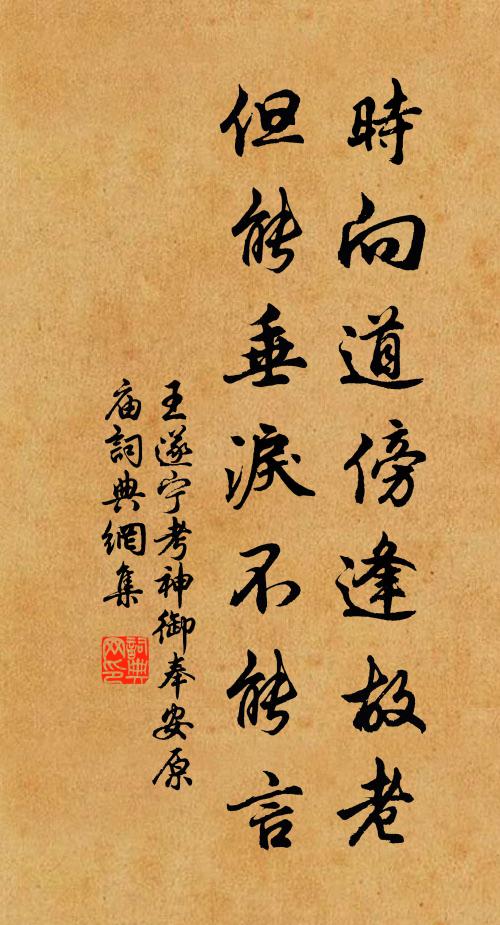 時向道傍逢故老
但能垂淚不能言
王遂宁考神御奉安原
庙詞典網集
詞典
网印